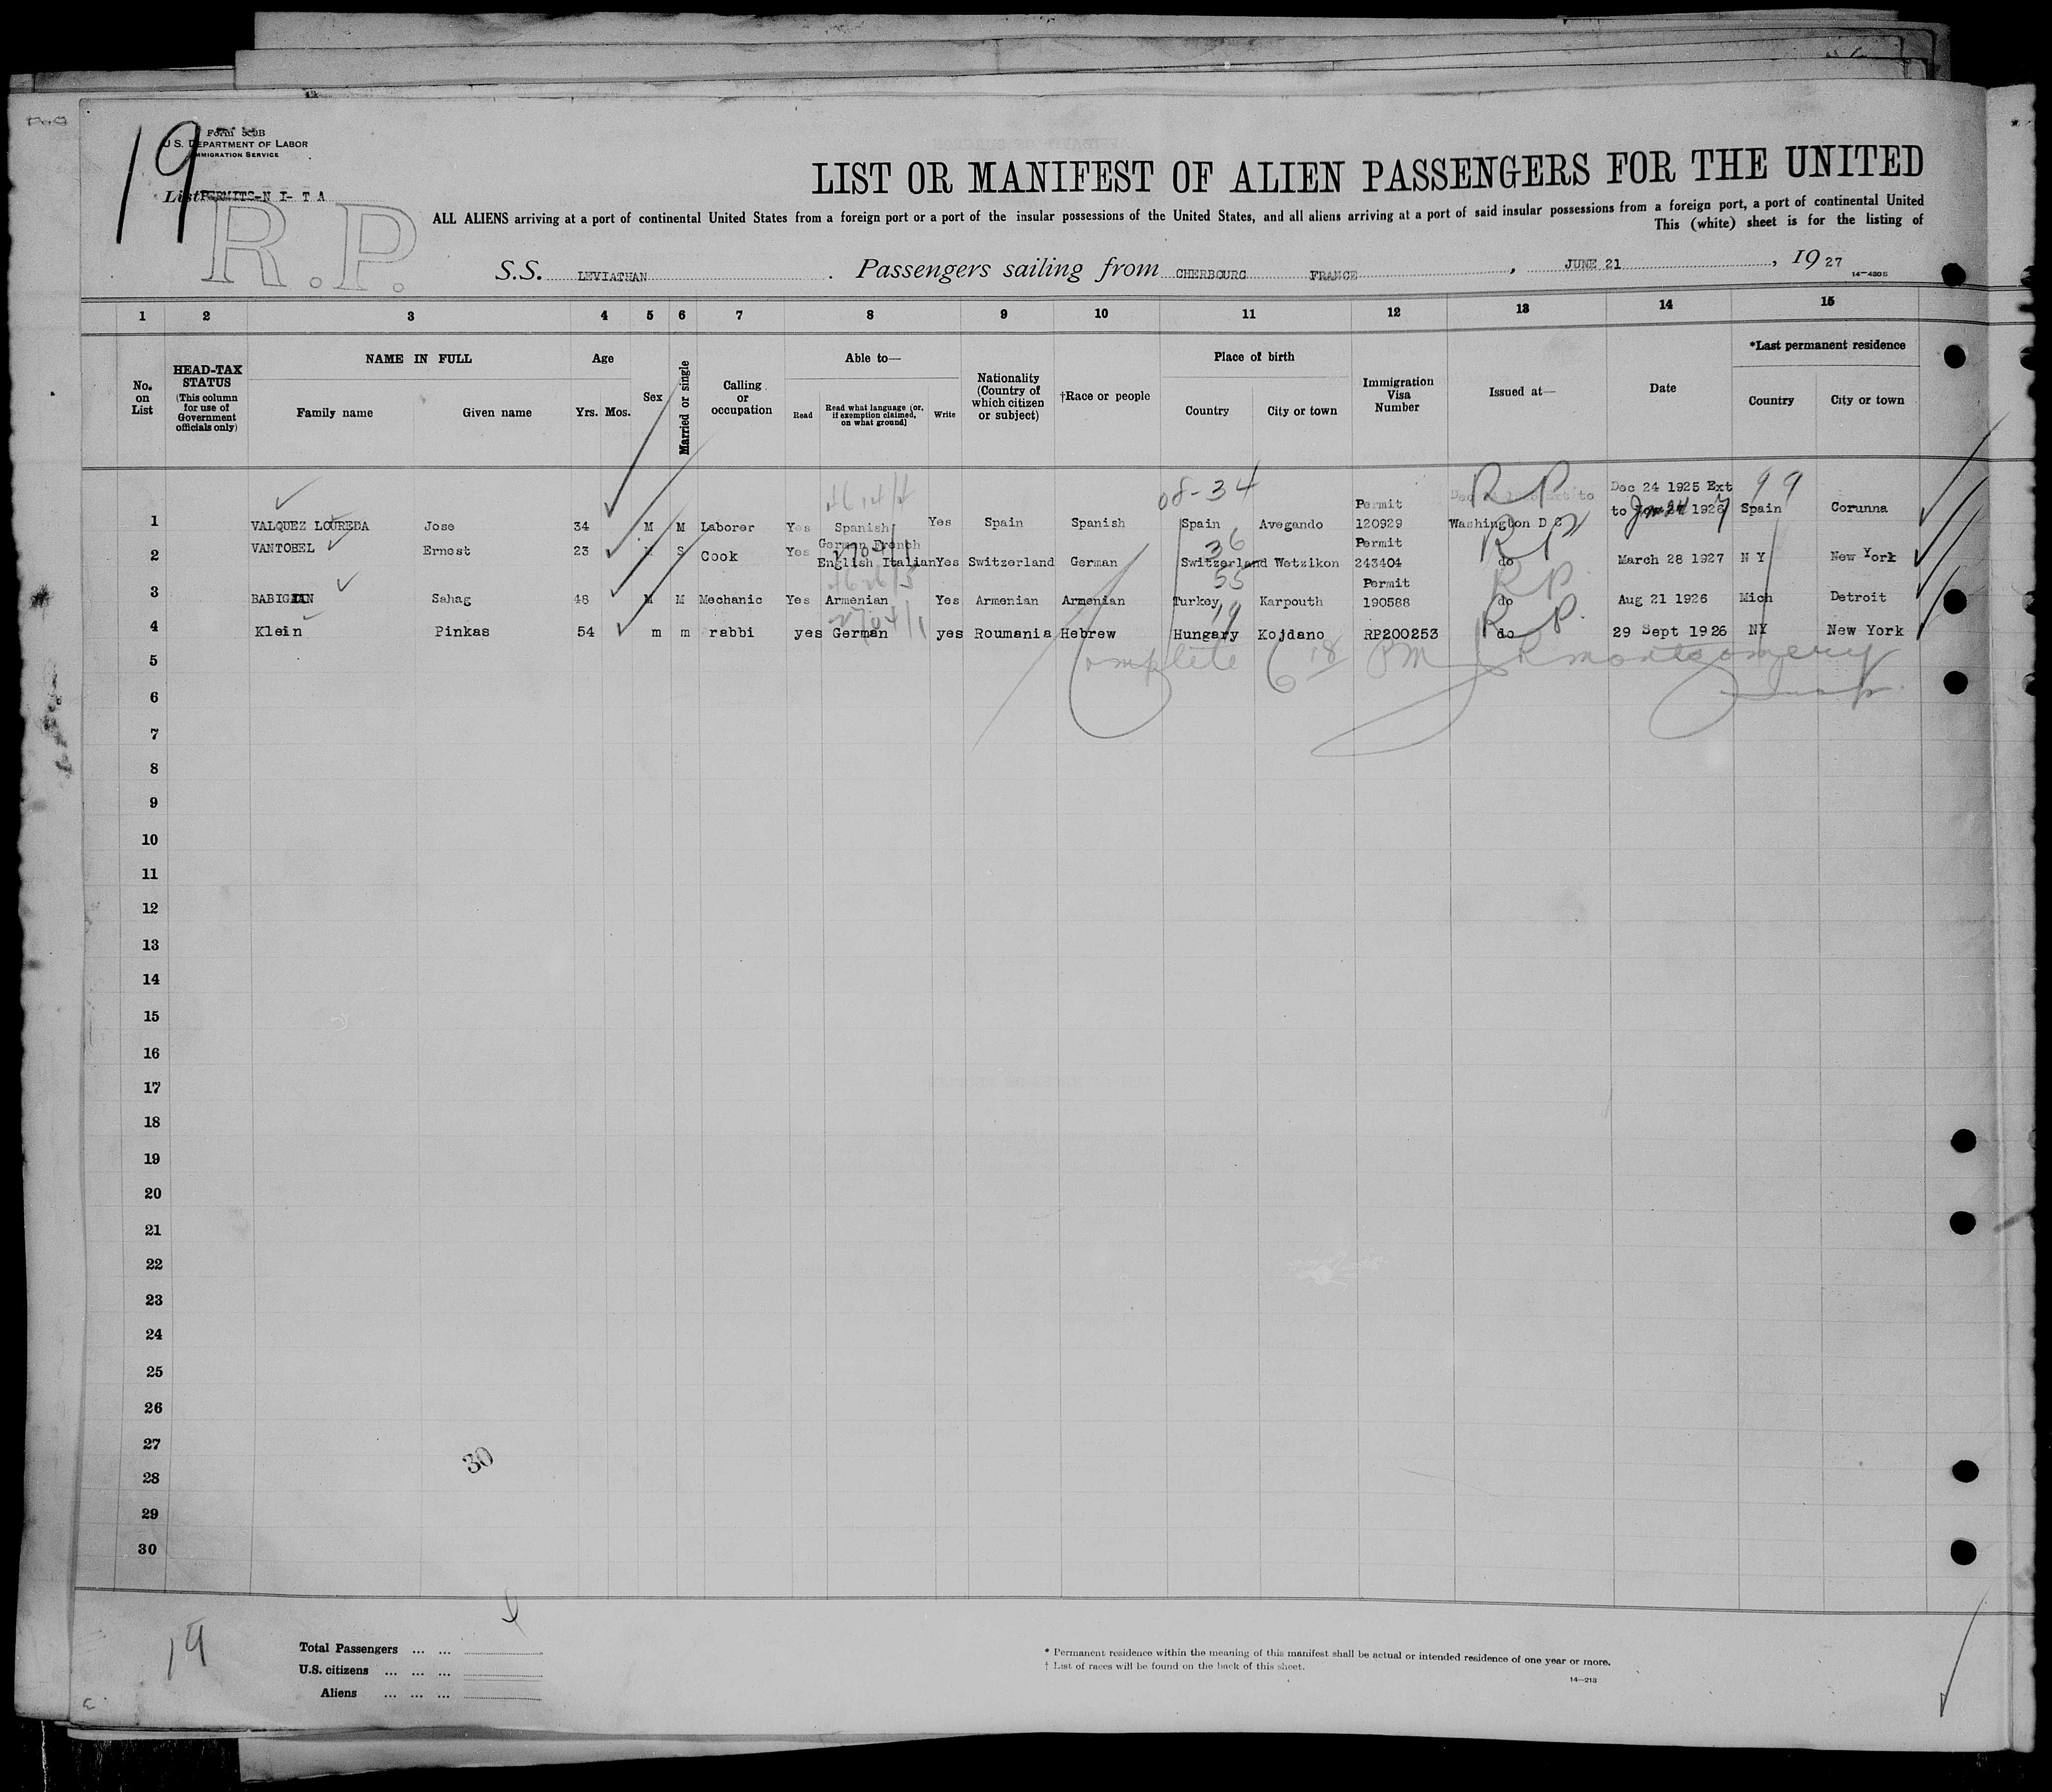 19
Form 500B
U.S. DEPARTMENT OF LABOR
IMMIGRATION SERVICE
List PERMITS-N I- T A
R.P.
LIST OR MANIFEST OF ALIEN PASSENGERS FOR THE UNITED
ALL ALIENS arriving at a port of continental United States from a foreign port or a port of the insular possessions of the United States, and all aliens arriving at a port of said insular possessions from a foreign port, a port of continental United
This (white) sheet is for the listing of
S.S. LEVIATHAN. Passengers sailing from CHERBOURG FRANCE, JUNE 21, 1927
14-4305
1 2 3 4 5 6 7 8 9 10 11 12 13 14 15
No. on List
HEAD-TAX STATUS (This column for use of Government officials only)
NAME IN FULL
Family name Given name
Age
Yrs. Mos.
Sex
Married or single
Calling or occupation
Able to—
Read
Read what language [or, if exemption claimed, on what ground]
Write
Nationality (Country of which citizen or subject)
†Race or people
Place of birth
Country City or town
Immigration Visa Number
Issued at—
Date
*Last permanent residence
Country City or town
08-34 RP 99
1 VALQUEZ LOUREDA Jose 34 M M Laborer Yes Spanish Yes Spain Spanish Spain Avegando Permit 120929 Washington D C Dec 24 1925 Ext to Jun 24 1926 7 Spain Corunna
36 RP
2 VANTOBEL Ernest 23 M S Cook Yes German French English Italian Yes Switzerland German Switzerland Wetzikon Permit 243404 do March 28 1927 N Y New York
55 RP
3 BABIGIAN Sahag 48 M M Mechanic Yes Armenian Yes Armenian Armenian Turkey Karpouth Permit 190588 do Aug 21 1926 Mich Detroit
19 R P.
4 Klein Pinkas 54 m m rabbi yes German yes Roumania Hebrew Hungary Kojdano RP200253 do 29 Sept 1926 NY New York
5 Complete 6 18 PM Montgomery
6
7
8
9
10
11
12
13
14
15
16
17
18
19
20
21
22
23
24
25
26
27
30
28
29
30
19
Total Passengers ... ...
U.S. citizens ... ... ...
Aliens ... ... ...
* Permanent residence within the meaning of this manifest shall be actual or intended residence of one year or more.
† List of races will be found on the back of this sheet.
14-213